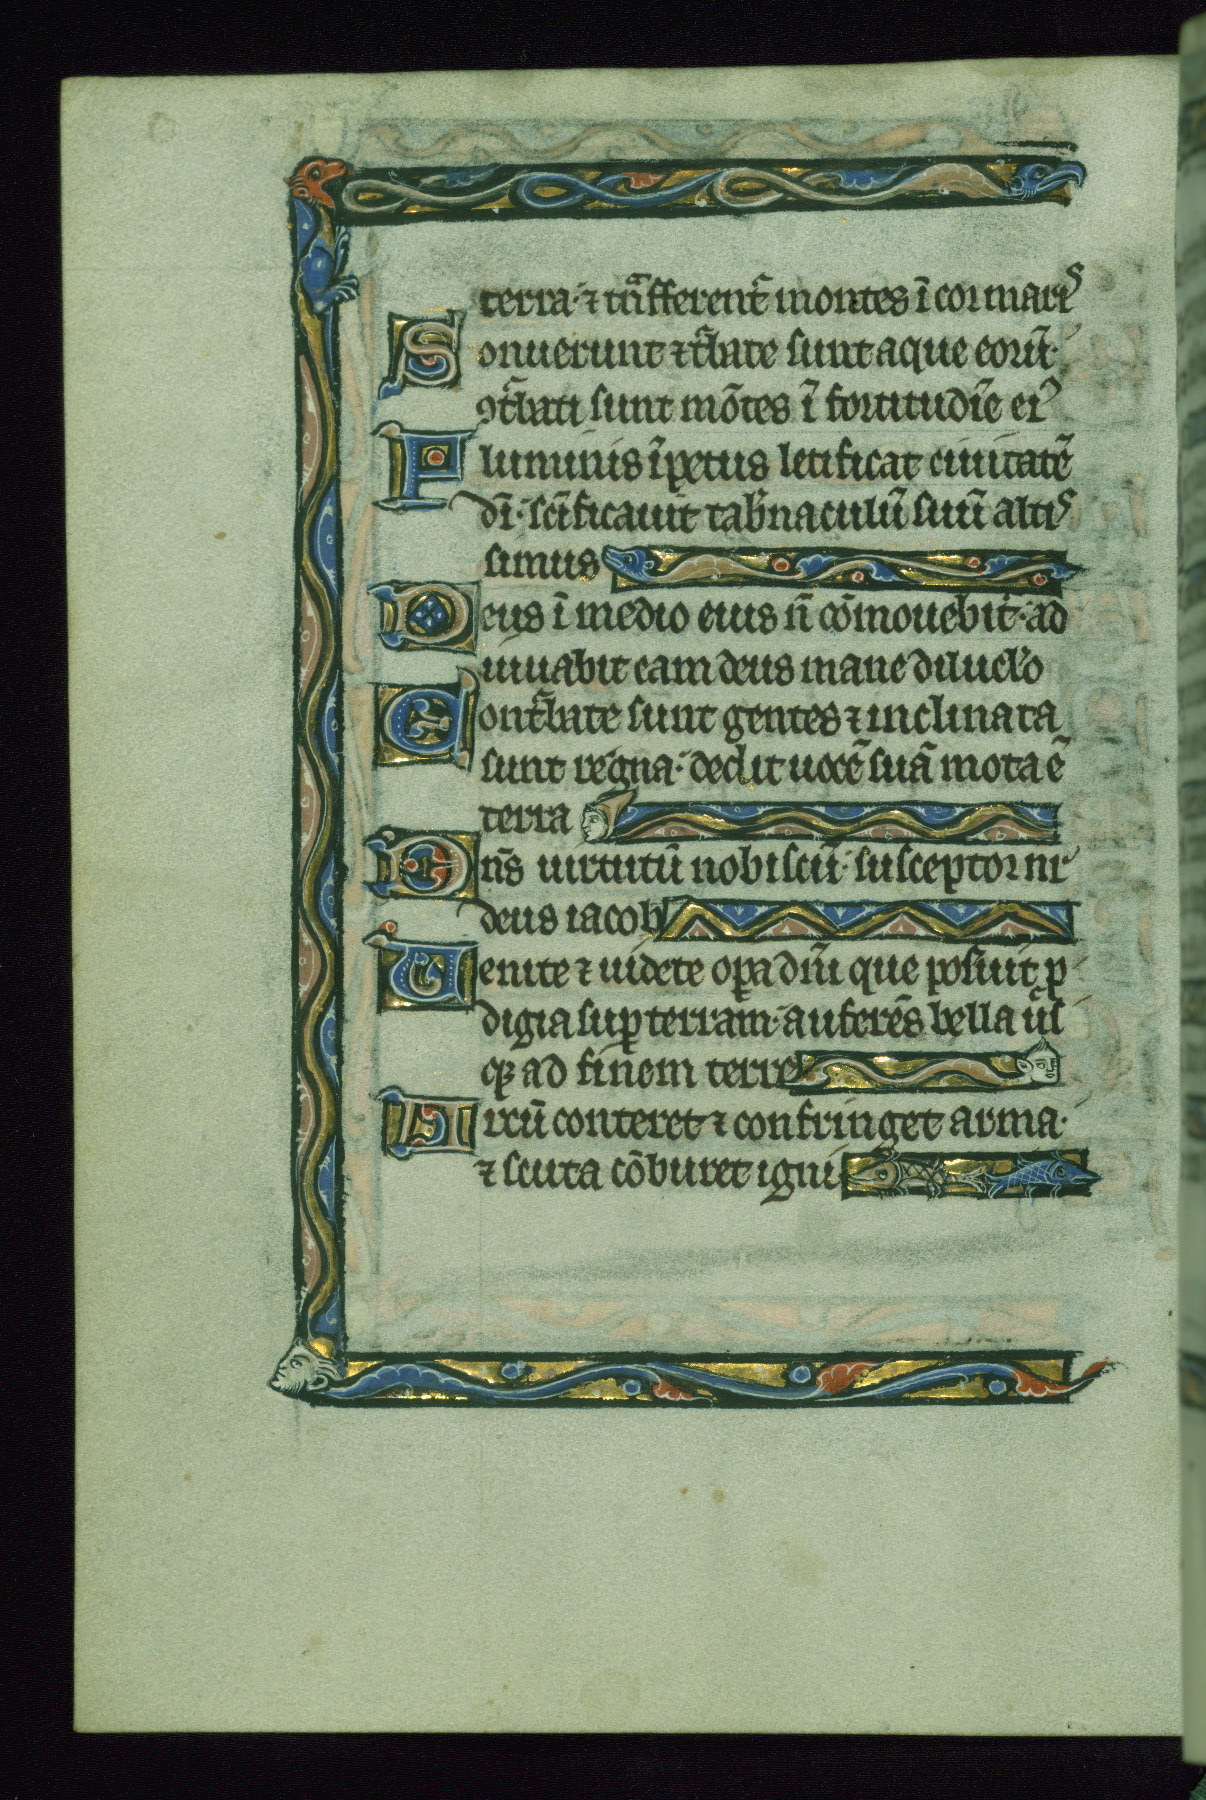 terra· ⁊ trͣ̄sferentᷣ montes ī cor marꝭ
Sonuerunt ⁊ tᷣbate sunt aque eorū·
ꝯtᷣbati sunt mōtes ī fortitudīe eiꝰ
Fluminis īpetus letificat ciuitatē
dī· sc̄ificauit tabᷣnaculū suū altis
simus
Deus ī medio eius n̄ cōmouebitᷣ· ad
iuuabit eam deus mane diluclͦo
Contᷣbate sunt gentes ⁊ inclinata
sunt regna· dedit uocē suā mota ē
terra
Dn̄s uirtutū nobiscū· susceptor nrͬ
deus iacob
Uenite ⁊ uidete oꝑa dn̄i que posuit ꝓ
digia suꝑ terram· auferēs bella us
qꝫ ad finem terre
Arcū conteret ⁊ confringet arma·
⁊ scuta cōburet igni